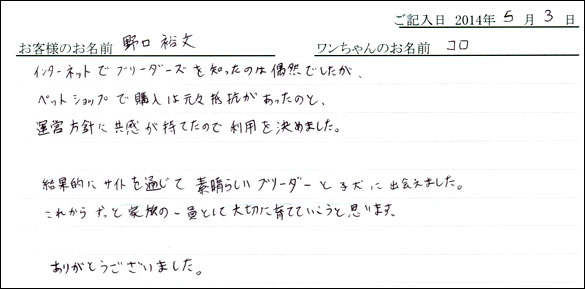 ご記入日 2014年 5 月 3 日
お客様のお名前 野口 裕文 ワンちゃんのお名前 コロ
インターネットでブリーダーズを知ったのは偶然でしたが、
ペットショップで購入は元々抵抗があったのと、
運営方針に共感が持てたので利用を決めました。
結果的にサイトを通じて素晴らしいブリーダーと子犬に出会えました。
これからずっと家族の一員として大切に育てていこうと思います。
ありがとうございました。